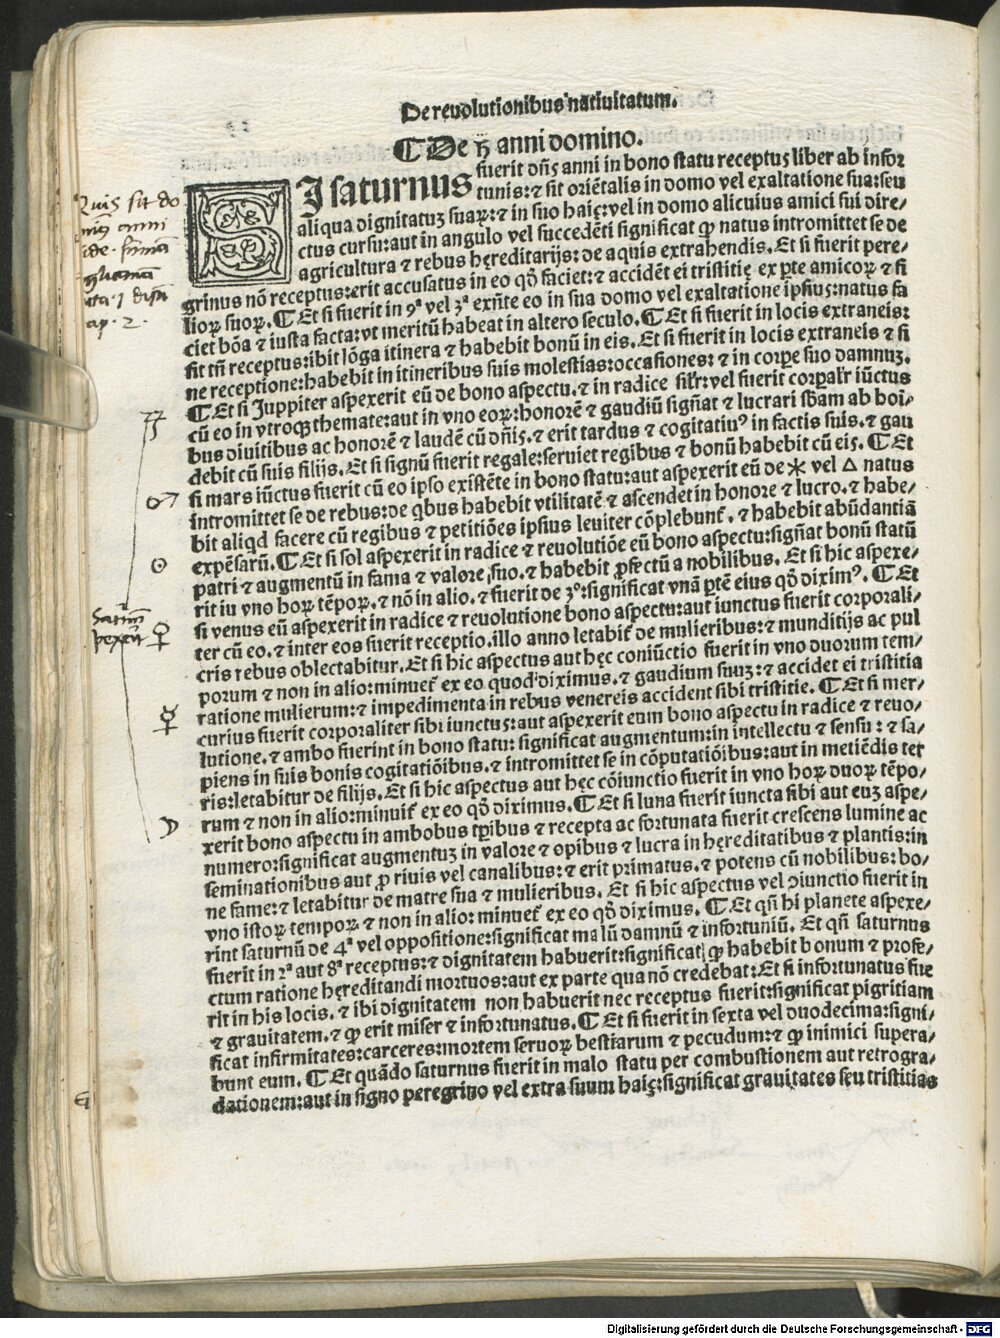 De reuolutionibus natiuitatum.
¶ De ħ anni domino.
SI saturnus fuerit dñs anni in bono statu receptus liber ab infor
tunis: ⁊ sit oriẽtalis in domo vel exaltatione sua: seu
aliqua dignitatuʒ suaꝝ: ⁊ in suo haiç: vel in domo alicuius amici sui dire-
ctus cursu: aut in angulo vel succedẽti significat ꝙ natus intromittet se de
agricultura ⁊ rebus hęreditarijs: de aquis extrahendis. Et si fuerit pere-
grinus nõ receptus: erit accusatus in eo qđ faciet: ⁊ accidẽt ei tristitię ex ꝑte amicoꝝ ⁊ fi
lioꝝ suoꝝ. ¶ Et si fuerit in 9ª vel 3ª exñte eo in sua domo vel exaltatione ipsius: natus fa
ciet bõa ⁊ iusta facta: vt meritũ habeat in altero seculo. ¶ Et si fuerit in locis extraneis:
sit tñ receptus: ibit lõga itinera ⁊ habebit bonũ in eis. Et si fuerit in locis extraneis ⁊ si
ne receptione: habebit in itineribus suis molestias: occasiones: ⁊ in corpe suo damnuʒ.
¶ Et si Juppiter aspexerit eũ de bono aspectu. ⁊ in radice silr: vel fuerit corꝑalr iũctus
cũ eo in vtroqꝫ themate: aut in vno eoꝝ: honorẽ ⁊ gaudiũ signat ⁊ lucrari sbam ab hoi-
bus diuitibus ac honorẽ ⁊ laudẽ cũ dñis. ⁊ erit tardus ⁊ cogitatiuꝰ in factis suis. ⁊ gau
debit cũ suis filijs. Et si signũ fuerit regale: seruiet regibus ⁊ bonũ habebit cũ eis. ¶ Et
si mars iũctus fuerit cũ eo ipso existẽte in bono statu: aut aspexerit eũ de ✶ vel △ natus
intromittet se de rebus: de qbus habebit vtilitatẽ ⁊ ascendet in honore ⁊ lucro. ⁊ habe-
bit aliqd facere cũ regibus ⁊ petitiões ipsius leuiter cõplebunt. ⁊ habebit abũdantiã
expẽsarũ. ¶ Et si sol aspexerit in radice ⁊ reuolutiõe eũ bono aspectu: signat bonũ statũ
patri ⁊ augmentũ in fama ⁊ valore suo. ⁊ habebit ꝓfectũ a nobilibus. Et si hic aspexe-
rit iu vno hoꝝ tẽpoꝝ. ⁊ nõ in alio. ⁊ fuerit de 3º: significat vnã ꝑtẽ eius qđ diximꝰ. ¶ Et
si venus eũ aspexerit in radice ⁊ reuolutione bono aspectu: aut iunctus fuerit corporali-
ter cũ eo. ⁊ inter eos fuerit receptio. illo anno letabit de mulieribus: ⁊ munditijs ac pul
cris rebus oblectabitur. Et si hic aspectus aut hęc coniũctio fuerit in vno duorum tem-
porum ⁊ non in alio: minuet ex eo quod diximus. ⁊ gaudium suuʒ: ⁊ accidet ei tristitia
ratione mulierum: ⁊ impedimenta in rebus venereis accident sibi tristitie. ¶ Et si mer-
curius fuerit corporaliter sibi iunctus: aut aspexerit eum bono aspectu in radice ⁊ reuo-
lutione. ⁊ ambo fuerint in bono statu: significat augmentum: in intellectu ⁊ sensu: ⁊ sa-
piens in suis bonis cogitatiõibus. ⁊ intromittet se in cõputatiõibus: aut in metiẽdis ter
ris: letabitur de filijs. Et si hic aspectus aut hęc cõiunctio fuerit in vno hoꝝ duoꝝ tẽpo-
rum ⁊ non in alio: minuit ex eo qđ diximus. ¶ Et si luna fuerit iuncta sibi aut euʒ aspe-
xerit bono aspectu in ambobus tꝑibus ⁊ recepta ac fortunata fuerit crescens lumine ac
numero: significat augmentuʒ in valore ⁊ opibus ⁊ lucra in hęreditatibus ⁊ plantis: in
seminationibus aut ꝓ riuis vel canalibus: ⁊ erit primatus. ⁊ potens cũ nobilibus: bo-
ne fame: ⁊ letabitur de matre sua ⁊ mulieribus. Et si hic aspectus vel ↄiunctio fuerit in
vno istoꝝ tempoꝝ ⁊ non in alio: minuet ex eo qđ diximus. ¶ Et qñ hi planete aspexe-
rint saturnũ de 4ª vel oppositione: significat malũ damnũ ⁊ infortuniũ. Et qñ saturnus
fuerit in 2ª aut 8ª receptus: ⁊ dignitatem habuerit: significat ꝙ habebit bonum ⁊ profe-
ctum ratione hęreditandi mortuos: aut ex parte qua nõ credebat: Et si infortunatus fue
rit in his locis. ⁊ ibi dignitatem non habuerit nec receptus fuerit: significat pigritiam
⁊ grauitatem. ⁊ ꝙ erit miser ⁊ infortunatus. ¶ Et si fuerit in sexta vel duodecima: signi-
ficat infirmitates: carceres: mortem seruoꝝ bestiarum ⁊ pecudum: ⁊ ꝙ inimici supera-
bunt eum. ¶ Et quãdo saturnus fuerit in malo statu per combustionem aut retrogra-
dationem: aut in signo peregrino vel extra suum haiç: significat grauitates seu tristitias
Quis sit do
anni
ap. 2.
♃
♂
☉
♀
☿
☽
Digitalisierung gefördert durch die Deutsche Forschungsgemeinschaft - DFG